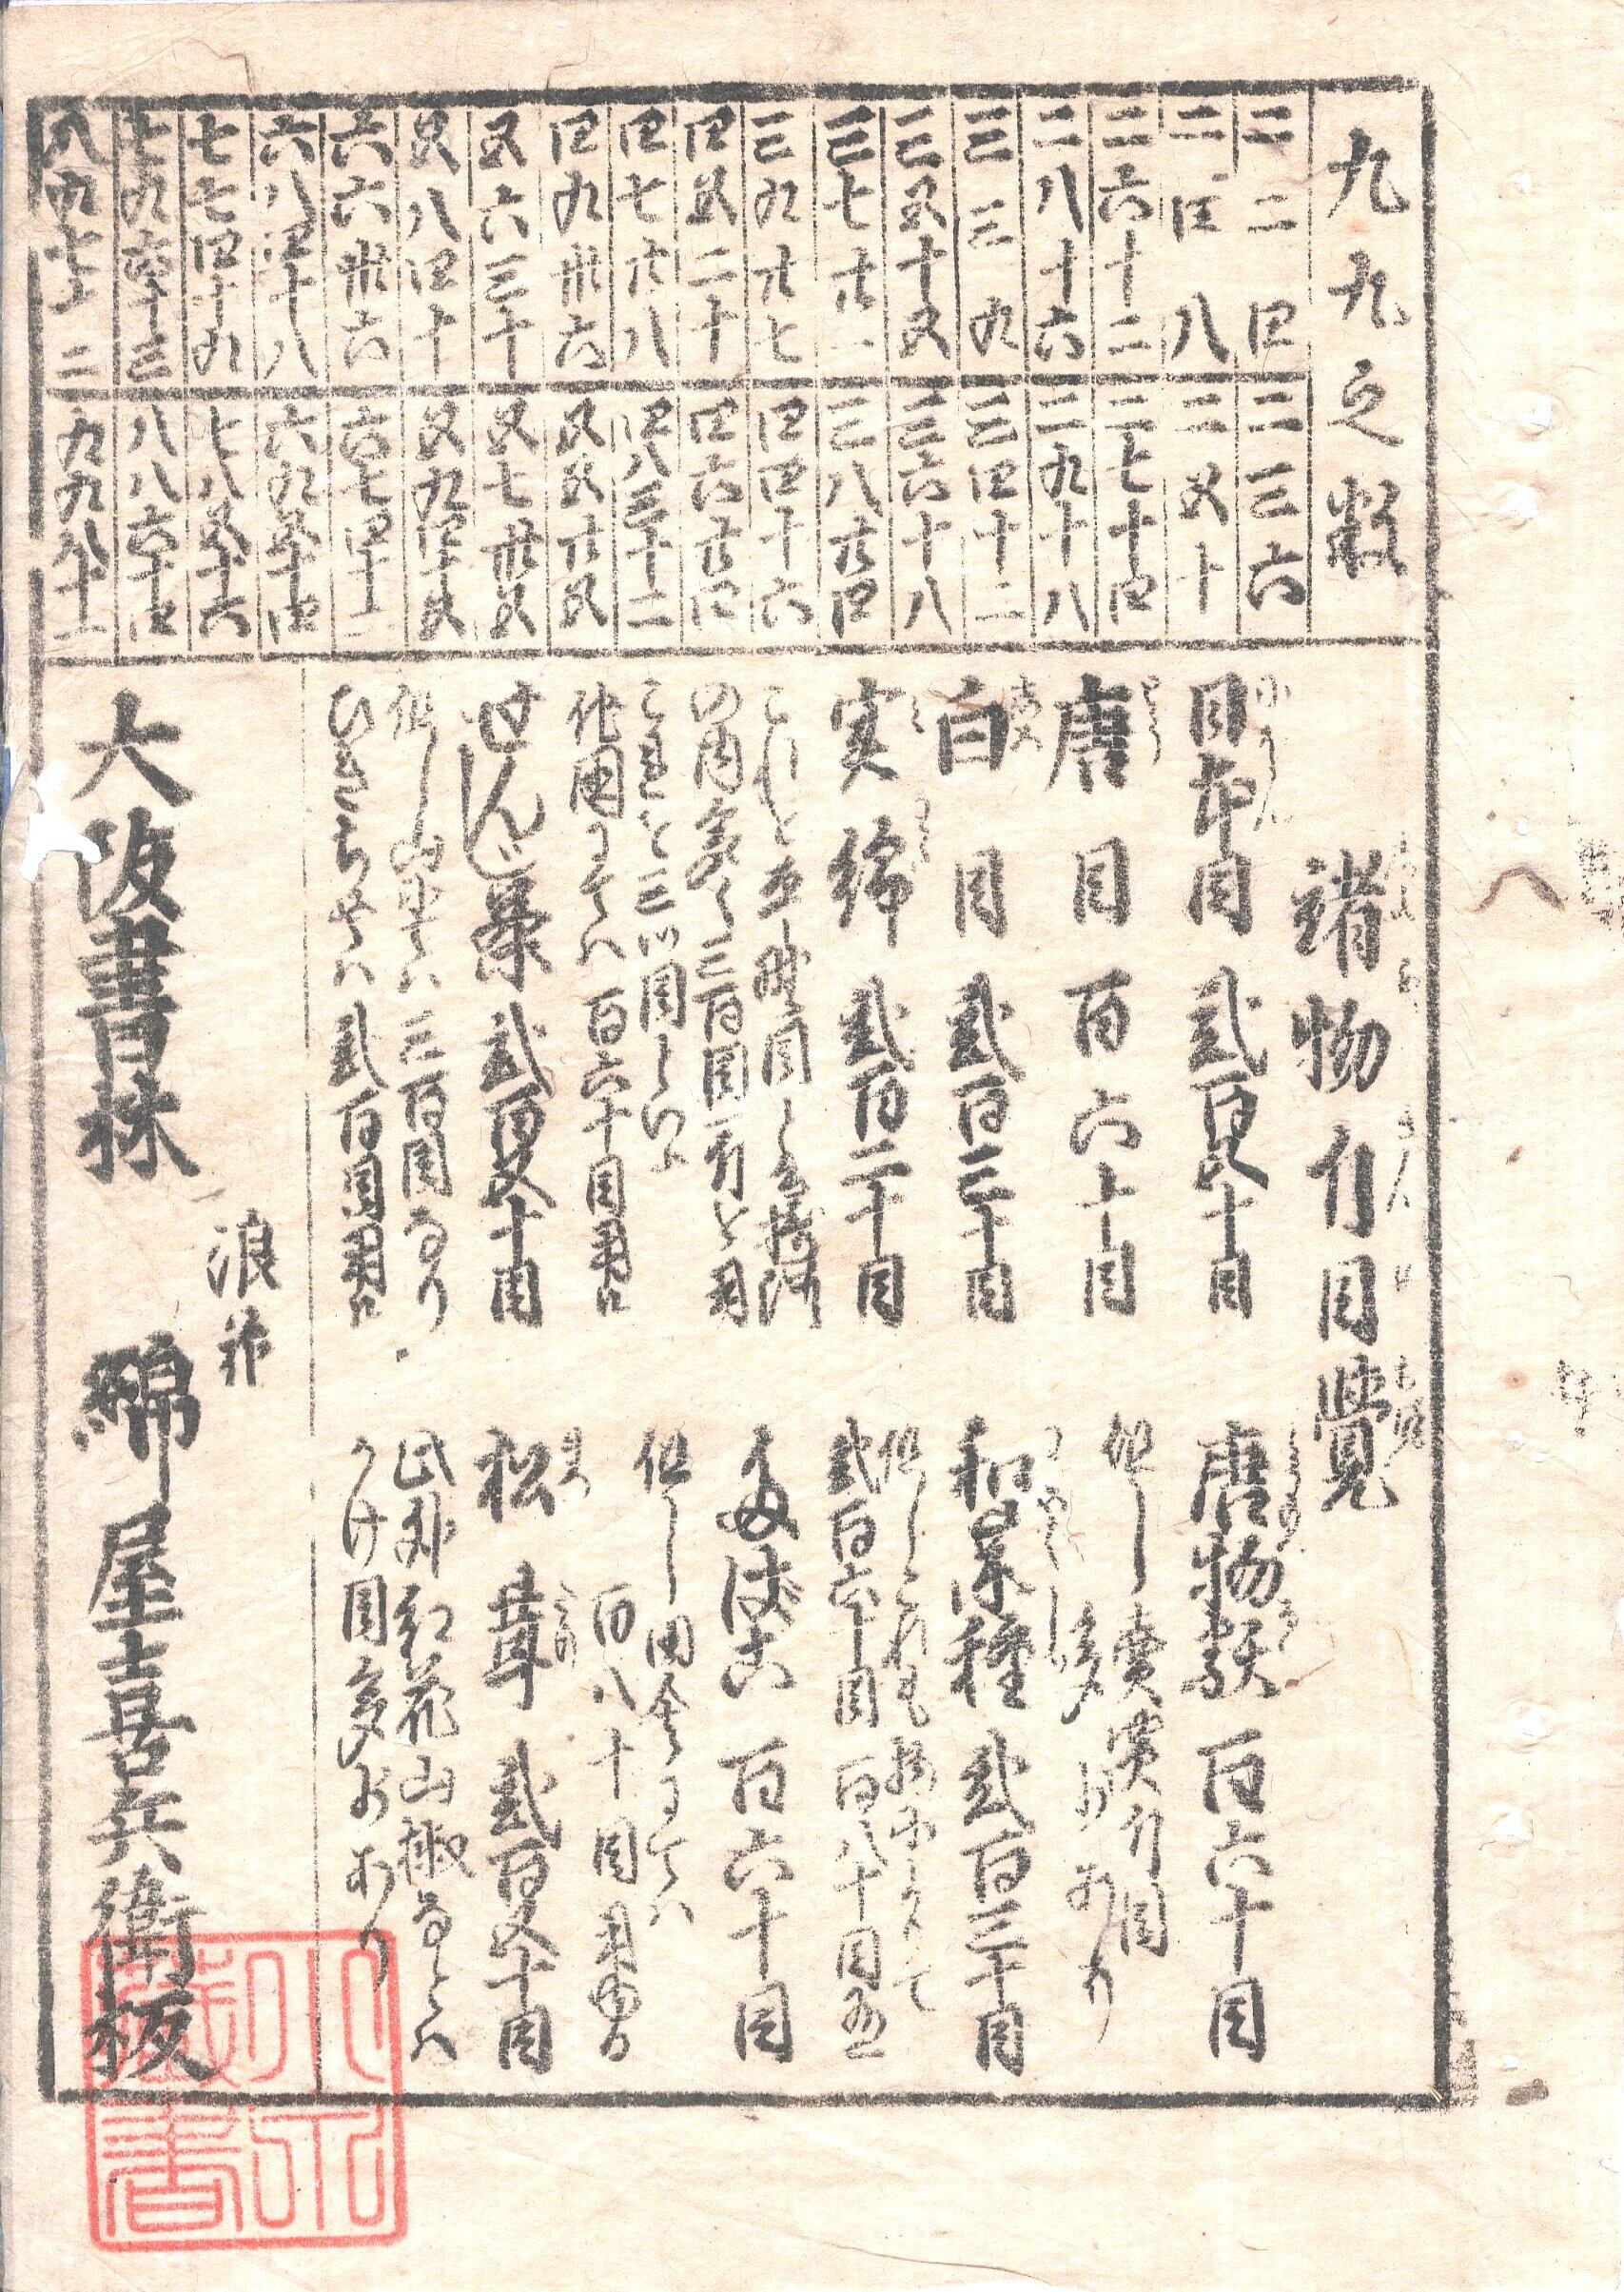 九九之数
二二四
二三六
二四八
二五十
二六十二
二七十四
二八十六
二九十八
三三九
三四十二
三五十五
三六十八
三七廿一
三八廿四
三九廿七
四四十六
四五二十
四六廿四
四七廿八
四八三十二
四九卅六
五五廿五
五六三十
五七卅五
五八四十
五九四十五
六六卅六
六七四十二
六八四十八
六九五十四
七七四十九
七八五十六
七九六十三
八八六十四
八九七十二
九九八十一
諸物斤目覚
日本目 弐百五十目
唐目 百六十目
白目 弐百三十目
実綿 弐百二十目
の内 三百目
これを三ツ目といふ
他国にては百六十目
せんじ茶 弐百五十目
但し山 は三百目なり
ひきちやは弐百目
唐物類 百六十目
但し 斤目
多くあり
和薬種 弐百三十目
但しこれも
弐百六十目 百八十目
たばこ 百六十目
但し田舎にては
百八十目
松茸 弐百五十目
此外紅花山椒などは
かけ目多少あり
浪花
大阪書林 綿屋喜兵衛板